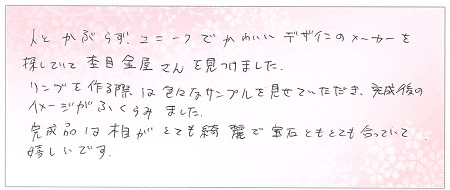 人とかぶらず、ユニークでかわいいデザインのメーカーを
探していて杢目金屋さんを見つけました。
リングを作る際は色々なサンプルを見せていただき、完成後の
イメージがふくらみました。
完成品は木目がとても綺麗で宝石ともとても合っていて
嬉しいです。